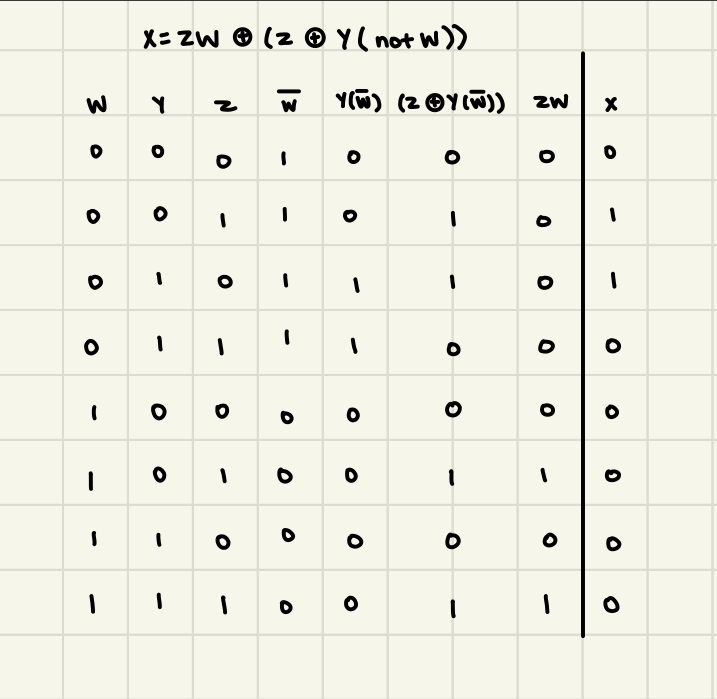 X = ZW ⊕ (Z ⊕ Y(not W))
W Y Z W̅ Y(W̅) (Z ⊕ Y(W̅)) ZW X
0 0 0 1 0 0 0 0
0 0 1 1 0 1 0 1
0 1 0 1 1 1 0 1
0 1 1 1 1 0 0 0
1 0 0 0 0 0 0 0
1 0 1 0 0 1 1 0
1 1 0 0 0 0 0 0
1 1 1 0 0 1 1 0